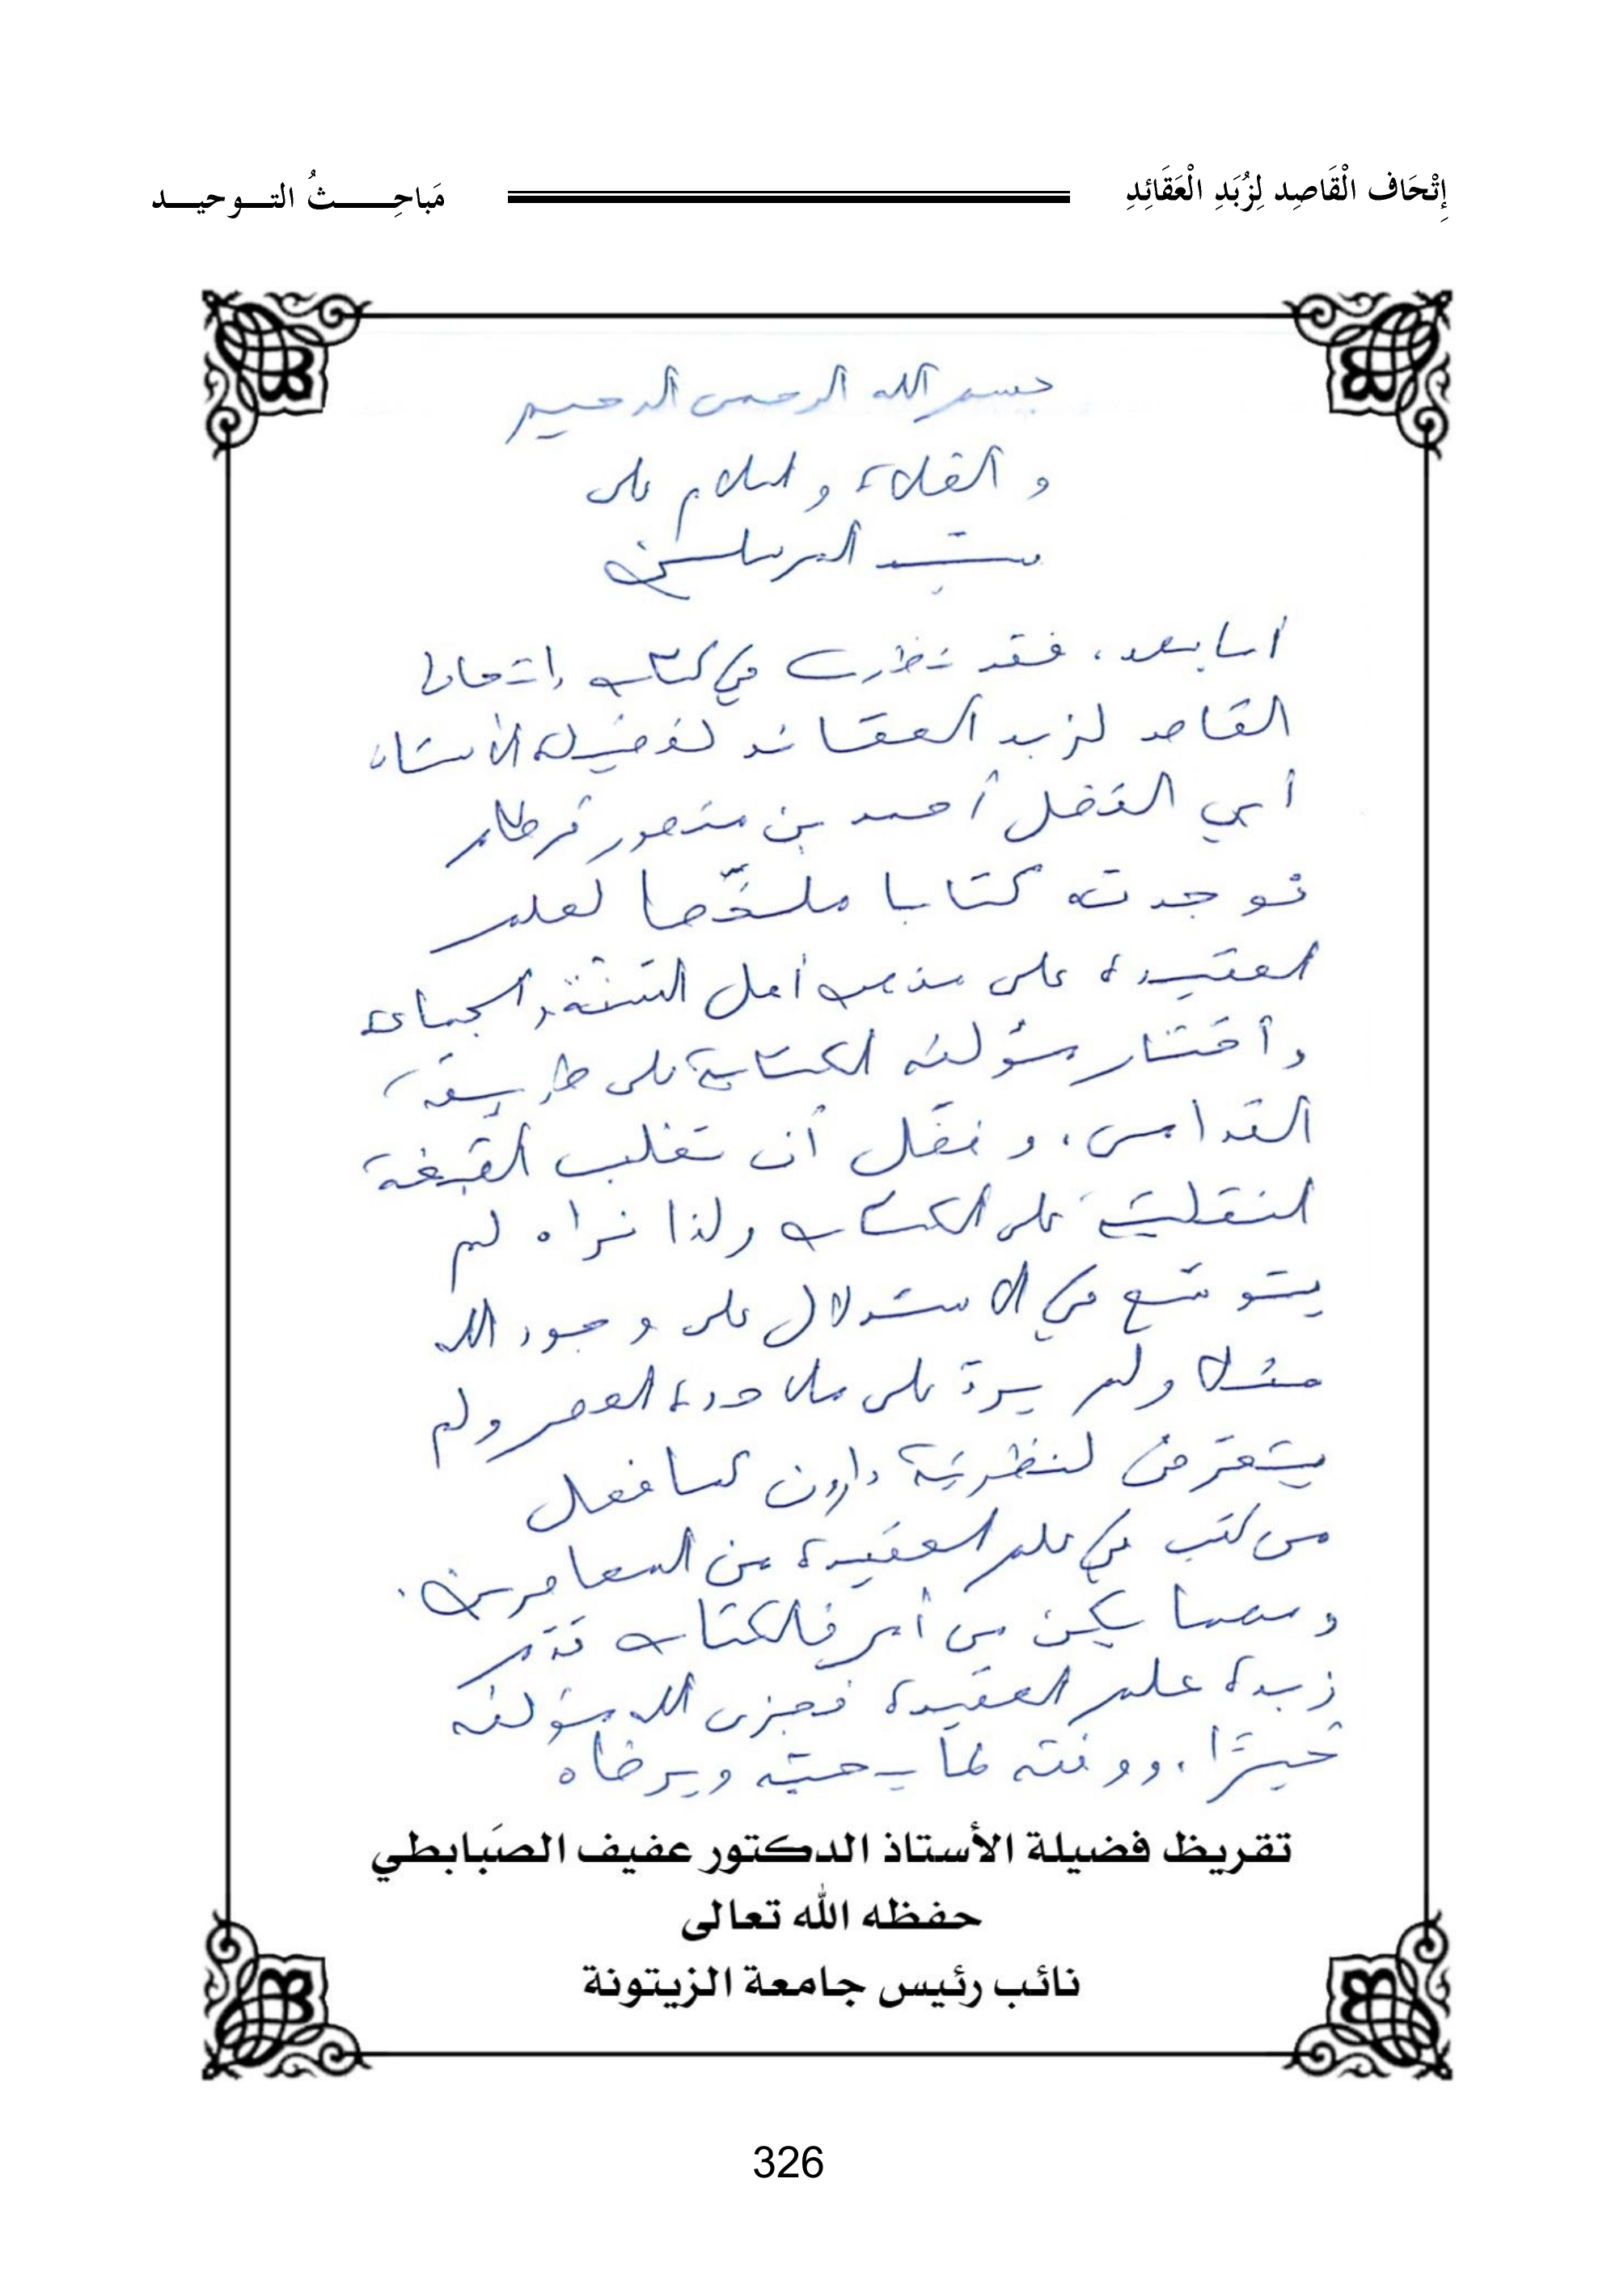 إِتْحَاف الْقَاصِد لِزُبَدِ الْعَقَائِدِ
مَباحِــــثُ التــوحيــد
بسم الله الرحمن الرحيم
و الصّلاة والسلام على
سيّد المرسلين
أما بعد، فقد نظرت في كتاب إتحاف
القاصد لزبد العقائد لفضيلة الأستاذ
أبي الفضل أحمد بن منصور قرطام
فوجدته كتابا ملخّصا لعلم
العقيدة على مذهب أهل السّنّة والجماعة
وأختار مؤلفه الكتابة على طريقة
القدامى، و فضّل أن تغلب الصّبغة
النقليّة على الكتاب ولذا نراه لم
يتوسّع في الاستدلال على وجود الله
مثلا ولم يردّ على ملاحدة العصر ولم
يتعرّض لنظريّة دارون كما فعل
من كتب في علم العقيدة من المعاصرين.
ومهما يكن من أمر فالكتاب قدّم
زبدة علم العقيدة فجزى الله مؤلفه
خيرًا، ووفقه لما يحبّه ويرضاه
تقريظ فضيلة الأستاذ الدكتور عفيف الصَبابطي
حفظه الله تعالى
نائب رئيس جامعة الزيتونة
326